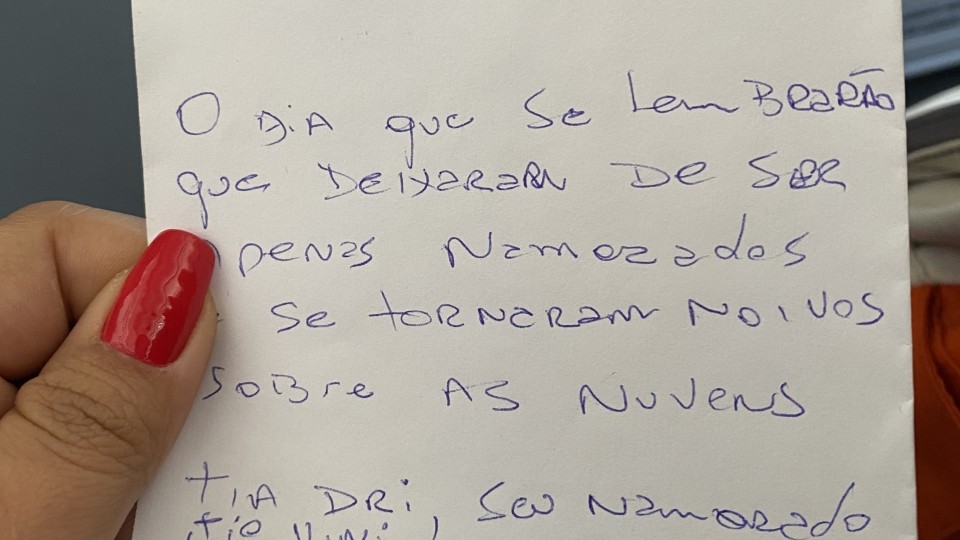 O DiA que Se lemBRARÃO
que DEIXARAM DE SER
apenas Namorados
e Se tORNARAM NOIVOS
SOBre AS NUVENS
tiA DRi, SEU Namorado
tio